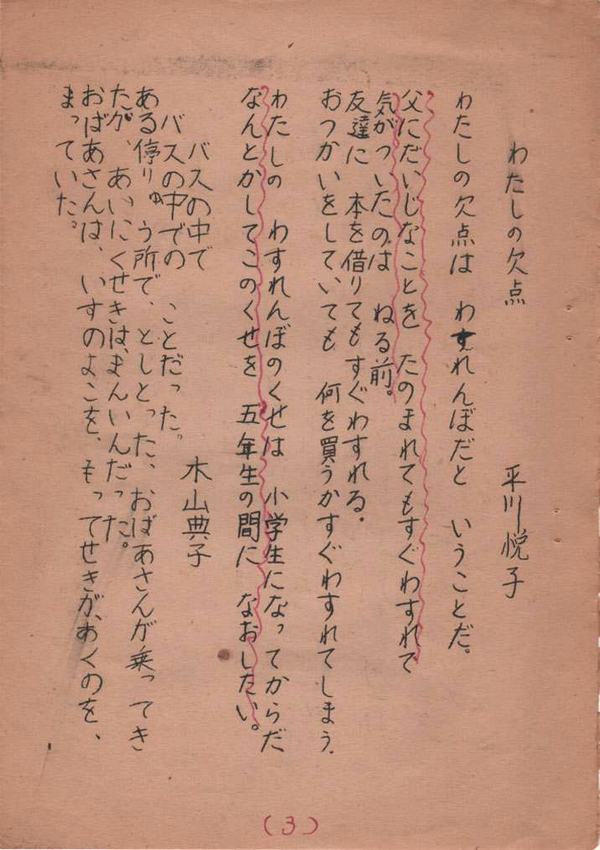 わたしの欠点
平川悦子
わたしの欠点は　わすれんぼだと　いうことだ。
父にだいじなことを　たのまれてもすぐわすれて
気がついたのは　ねる前。
友達に　本を借りてもすぐわすれる．
おつかいをしていても　何を買うかすぐわすれてしまう．
わたしの　わすれんぼのくせは　小学生になってからだ
なんとかしてこのくせを　五年生の間に　なおしたい。
バスの中で
木山典子
バスの中での　ことだった。
ある停りゅう所で、としとった、おばあさんが乗ってき
たが、あいにくせきは、まんいんだった。
おばあさんは、いすのよこを、もってせきが、あくのを、
まっていた。
(3)